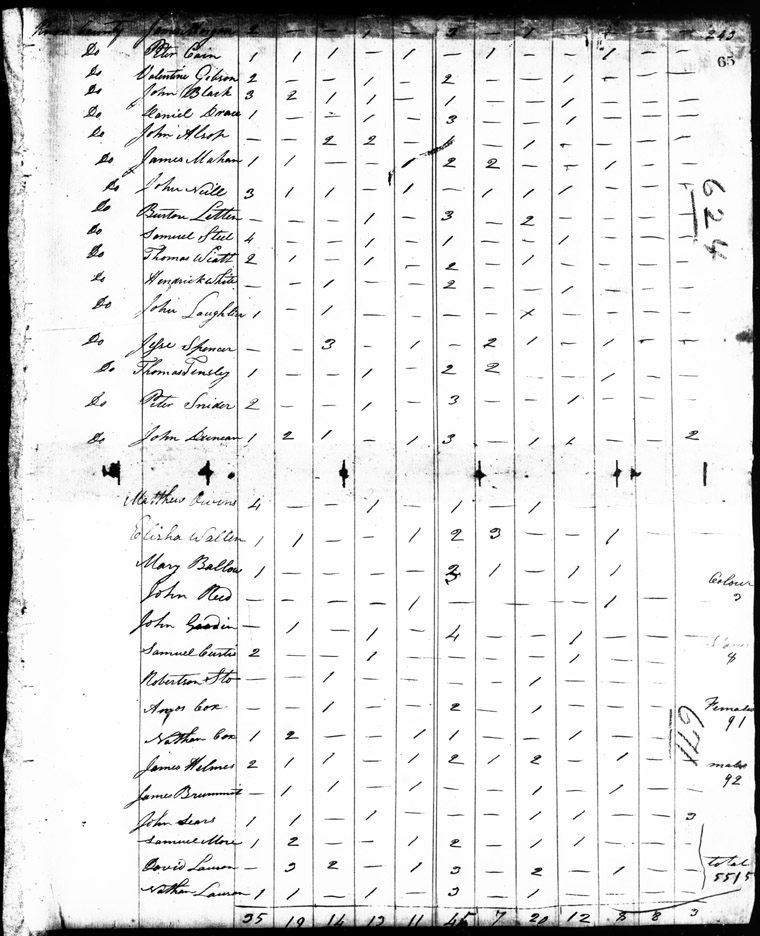 County 2 — — 1 — 3 — — — — — — 243
65
Do Peter Cain 1 1 1 — 1 — 1 — — 1 — —
Do Valentine Gibson 2 — — 1 — 2 — — 1 — —
Do John Black 3 2 1 1 — 1 — — 1 — — —
Do Daniel 1 — — 1 — 3 — — 1 — — —
Do John Alsop — — 2 2 — — 1
Do James Mahan 1 1 — — 1 2 2 — — 1 — —
Do John Neill 3 1 1 — 1 — 1 1 1 — —
Do Burton Litten — — — 1 — 3 — 2 — — — —
624
Do Samuel Steel 4 — — 1 1 — — 1 — — —
Do Thomas Wiatt 2 1 — 1 — 2 — 1 — — — —
Do Hendrick White — — 1 — — 2 — — 1 — — —
Do John Laughlin 1 — 1 — — — — x — — — —
Do Jesse Spencer — — 3 — 1 — 2 1 — 1 — —
Do Thomas Tensley 1 — — 1 — 2 2 — 1 — —
Do Peter Snider 2 — — 1 — 3 — — 1 — — —
Do John Duncan 1 2 1 — 1 3 — 1 1 — — 2
Matthew Owens 4 — — 1 — 1 — 1 — — — —
Elisha Wallen 1 1 — — 1 2 3 — — 1 — —
Mary Ballow 1 — — — — 1 — 1 1 — —
Colour
3
John Reed — — — — 1 — — — — 1 — —
John Goodin — 1 — 1 — 4 — — 1 — — —
Samuel Curtis 2 — — 1 — — — — 1 — — —
8
Robertson Sto — — 1 — — — — 1 — — — —
Cox — — 1 — — 2 — 1 — — — —
Females
91
Nathan Cox 1 2 — — 1 1 — — 1 — — —
671
James Helmes 2 1 1 — 1 2 1 2 — 1 — —
males
92
James Brummit — 1 1 — 1 — — 1 1 — — 1
John Sears 1 1 — 1 — — — 1 1 — — 3
Samuel More 1 2 — — 1 2 — 1 1 — — —
David Lawson — 3 2 — 1 3 — 2 — 1 — —
total
5515
Nathan Lawson 1 1 — 1 — 3 — 1 — — — —
35 19 14 13 11 45 7 20 12 8 8 3